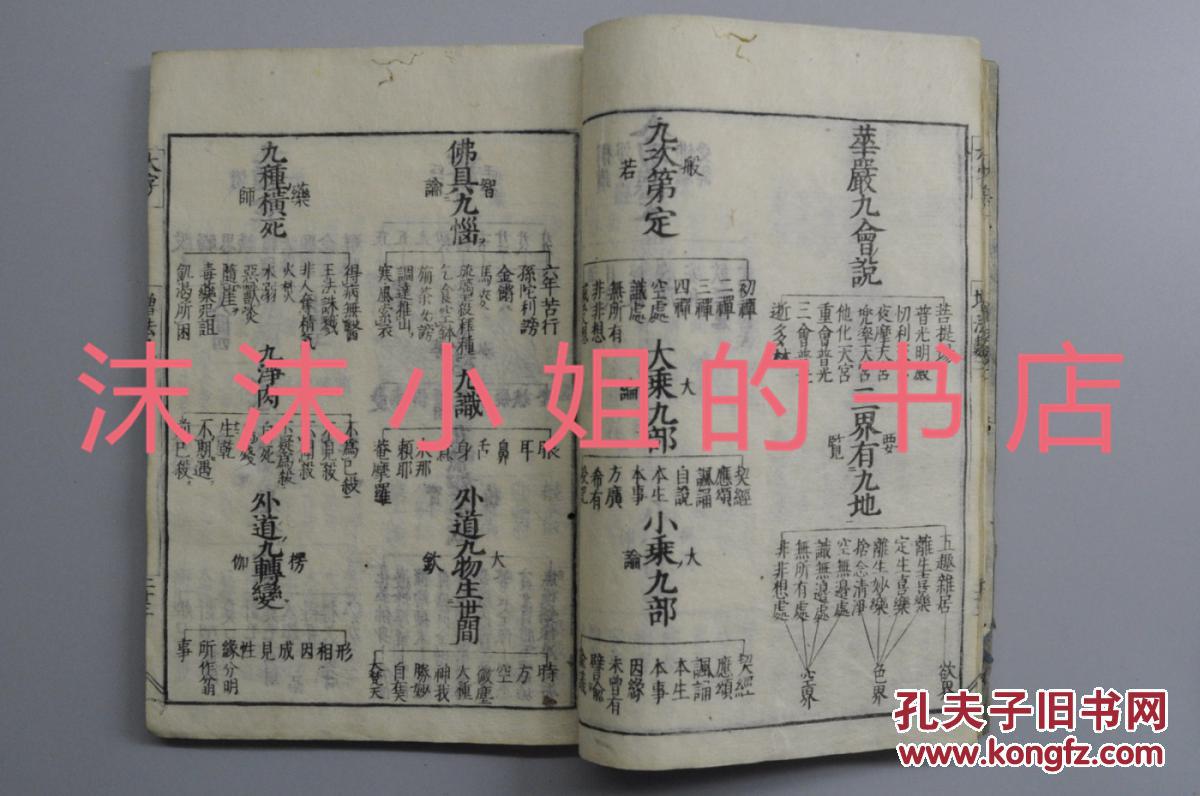 華嚴九會說
菩提場
普光明殿
忉利
夜摩天宮
兜率天宮
他化天宮
重會普光
三會普光
逝多林
三界有九地
要覽
五趣雜居
離生喜樂
定生喜樂
離喜妙樂
捨念清淨
空無邊處
識無邊處
無所有處
非非想處
欲界
色界
空界
九次第定
般若
初禪
二禪
三禪
四禪
空處
識處
無所有
非非想
大乘九部
大論
契經
應頌
諷誦
自說
本生
本事
方廣
希有
小乘九部
大論
契經
應頌
諷誦
本生
本事
因緣
未曾有
譬喻
論議
佛具九惱
智論
六年苦行
孫陀利謗
金鏘
馬麥
琉璃殺釋種
乞食空鉢
旃荼女謗
調達推山
寒風索衣
九識
眼
耳
鼻
舌
身
意
末那
賴耶
菴摩羅
外道九物生世間
大鈔
時
方
空
微塵
大種
神我
勝妙
自在天
大梵天
九種橫死
藥師
得病無醫
王法誅戮
非人奪精氣
火焚
水溺
惡獸啖
墮崖
毒藥咒詛
飢渴所困
九淨肉
不爲己殺
自死
生乾
不期遇
前已殺
外道九轉變
楞伽
形
相
因
成
見
性
緣分明
所作翁
事
沫沫小姐的书店
孔夫子旧书网
www.kongfz.com